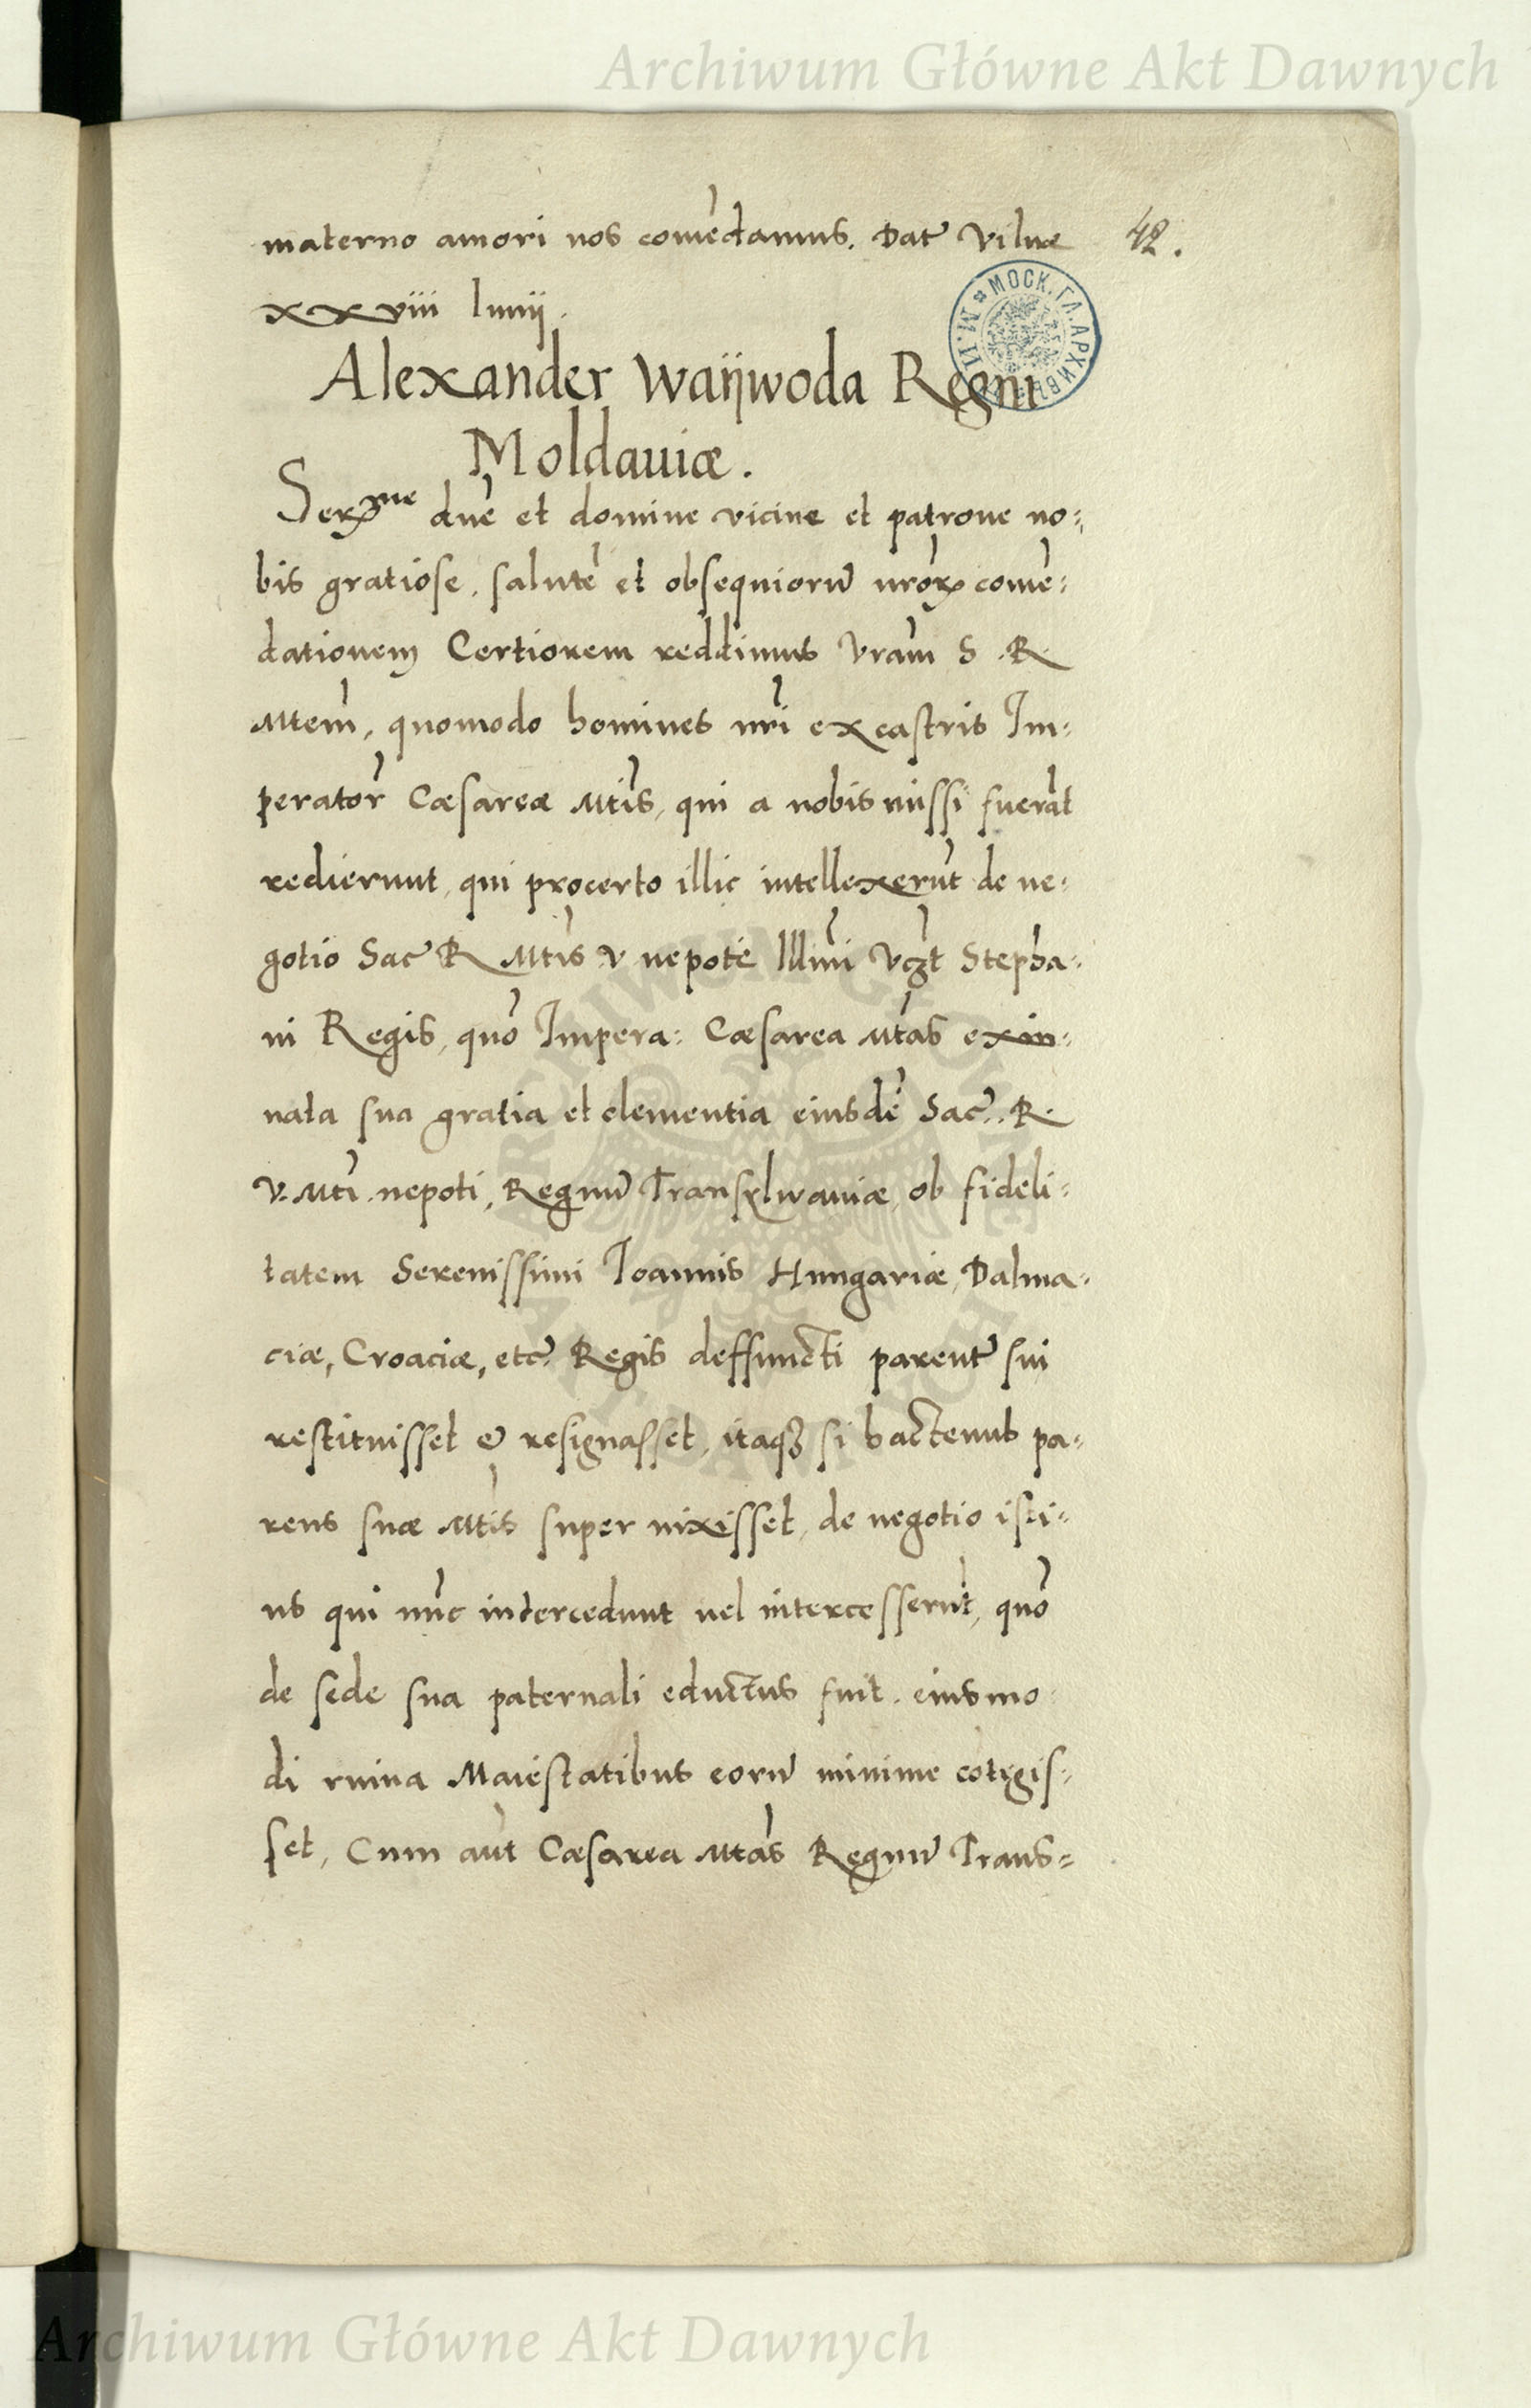 Archiwum Główne Akt Dawnych
materno amori nos comẽdamus. Dat̃ Vilnæ 42.
xxviii Iunij.
МОСК. ГЛ. АРХИВЪ М. И.
Alexander Waijwoda Regni
Moldauiæ.
Serꝫme dn̄e et domine vicine et patrone no:
bis gratiose, salutē et obsequiorū nr̄oꝝ comē:
dationem Certiorem reddimus Vram̄ S. R.
Mtem̄, quomodo homines nr̄i ex castris Im:
perator̄ Cæsareæ Mtis̄, qui a nobis missi fuerāt
redierunt, qui procerto illic intellexerūt de ne:
gotio Sac̄ R Mtis̄ V nepotē Illmi̅ Vꝫt Stepha:
ni Regis, quō Impera: Cæsarea Mtas̄ exin:
nata sua gratia et clementia eiusdē Sac̄. R.
V. Mti̅ nepoti, Regnū Transylwaniæ, ob fideli:
tatem Serenissimi Ioannis Hungariæ, Dalma:
ciæ, Croaciæ, etc̄. Regis deffuncti parent̄ sui
restituisset & resignasset, itaqꝫ si hactenus pa:
rens suæ Mtis̄ super uixisset, de negotio isti:
us qui nūc intercedunt uel intercesserūt, quō
de sede sua paternali eductus fuit. eiusmo
di ruina Maiestatibus eorū minime cōtigis:
set, Cum aūt Cæsarea Mtas̄ Regnū Trans:
Archiwum Główne Akt Dawnych